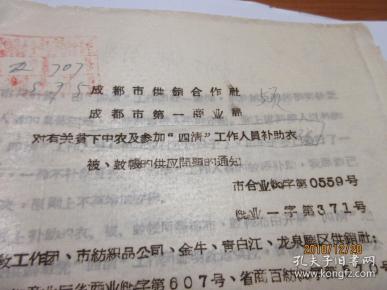 成都市供销合作社
成都市第一商业局
对有关贫下中农及参加“四清”工作人员补助衣
被、蚊帐的供应问题的通知
市合业购字第0559号
商业一字第371号
教工作团、市纺织品公司、金牛、青白江、龙泉驿区供销社：
商业厅化商业购字第607号、省商百纺
707
2010/12/20